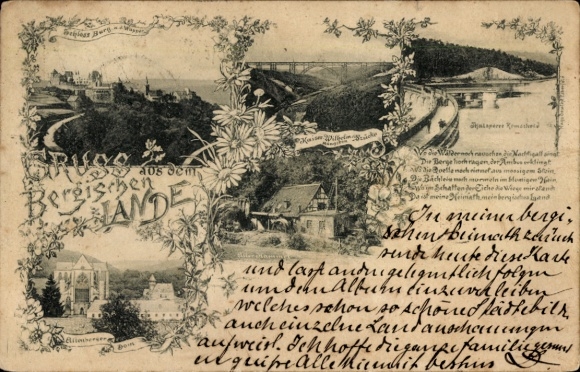 Schloss Burg a. d. Wupper
Kaiser Wilhelm-Brücke
Thalsperre Remscheid
GRUSS aus dem
Bergischen
LANDE
Wo die Wälder noch rauschen, die Nachtigall singt,
Die Berge hoch ragen, der Amboss erklingt,
Wo die Quelle noch rinnet aus moosigem Stein,
Die Bächlein noch murmeln im blumigen Hain,
Wo im Schatten der Eiche die Wiege mir stand,
Da ist meine Heimath, mein bergisches Land
Altenberger
Dom
In meiner bergi-
schen Heimath zurück
sende heute diese Karte
und lasse andre gelegentlich folgen
um dem Album einzuverleiben
welches schon so schöne Städtebild.
auch einzelne Landanschauungen
aufweist. Ich hoffe die ganze Familie gesund
grüße Alle hiemit bestens